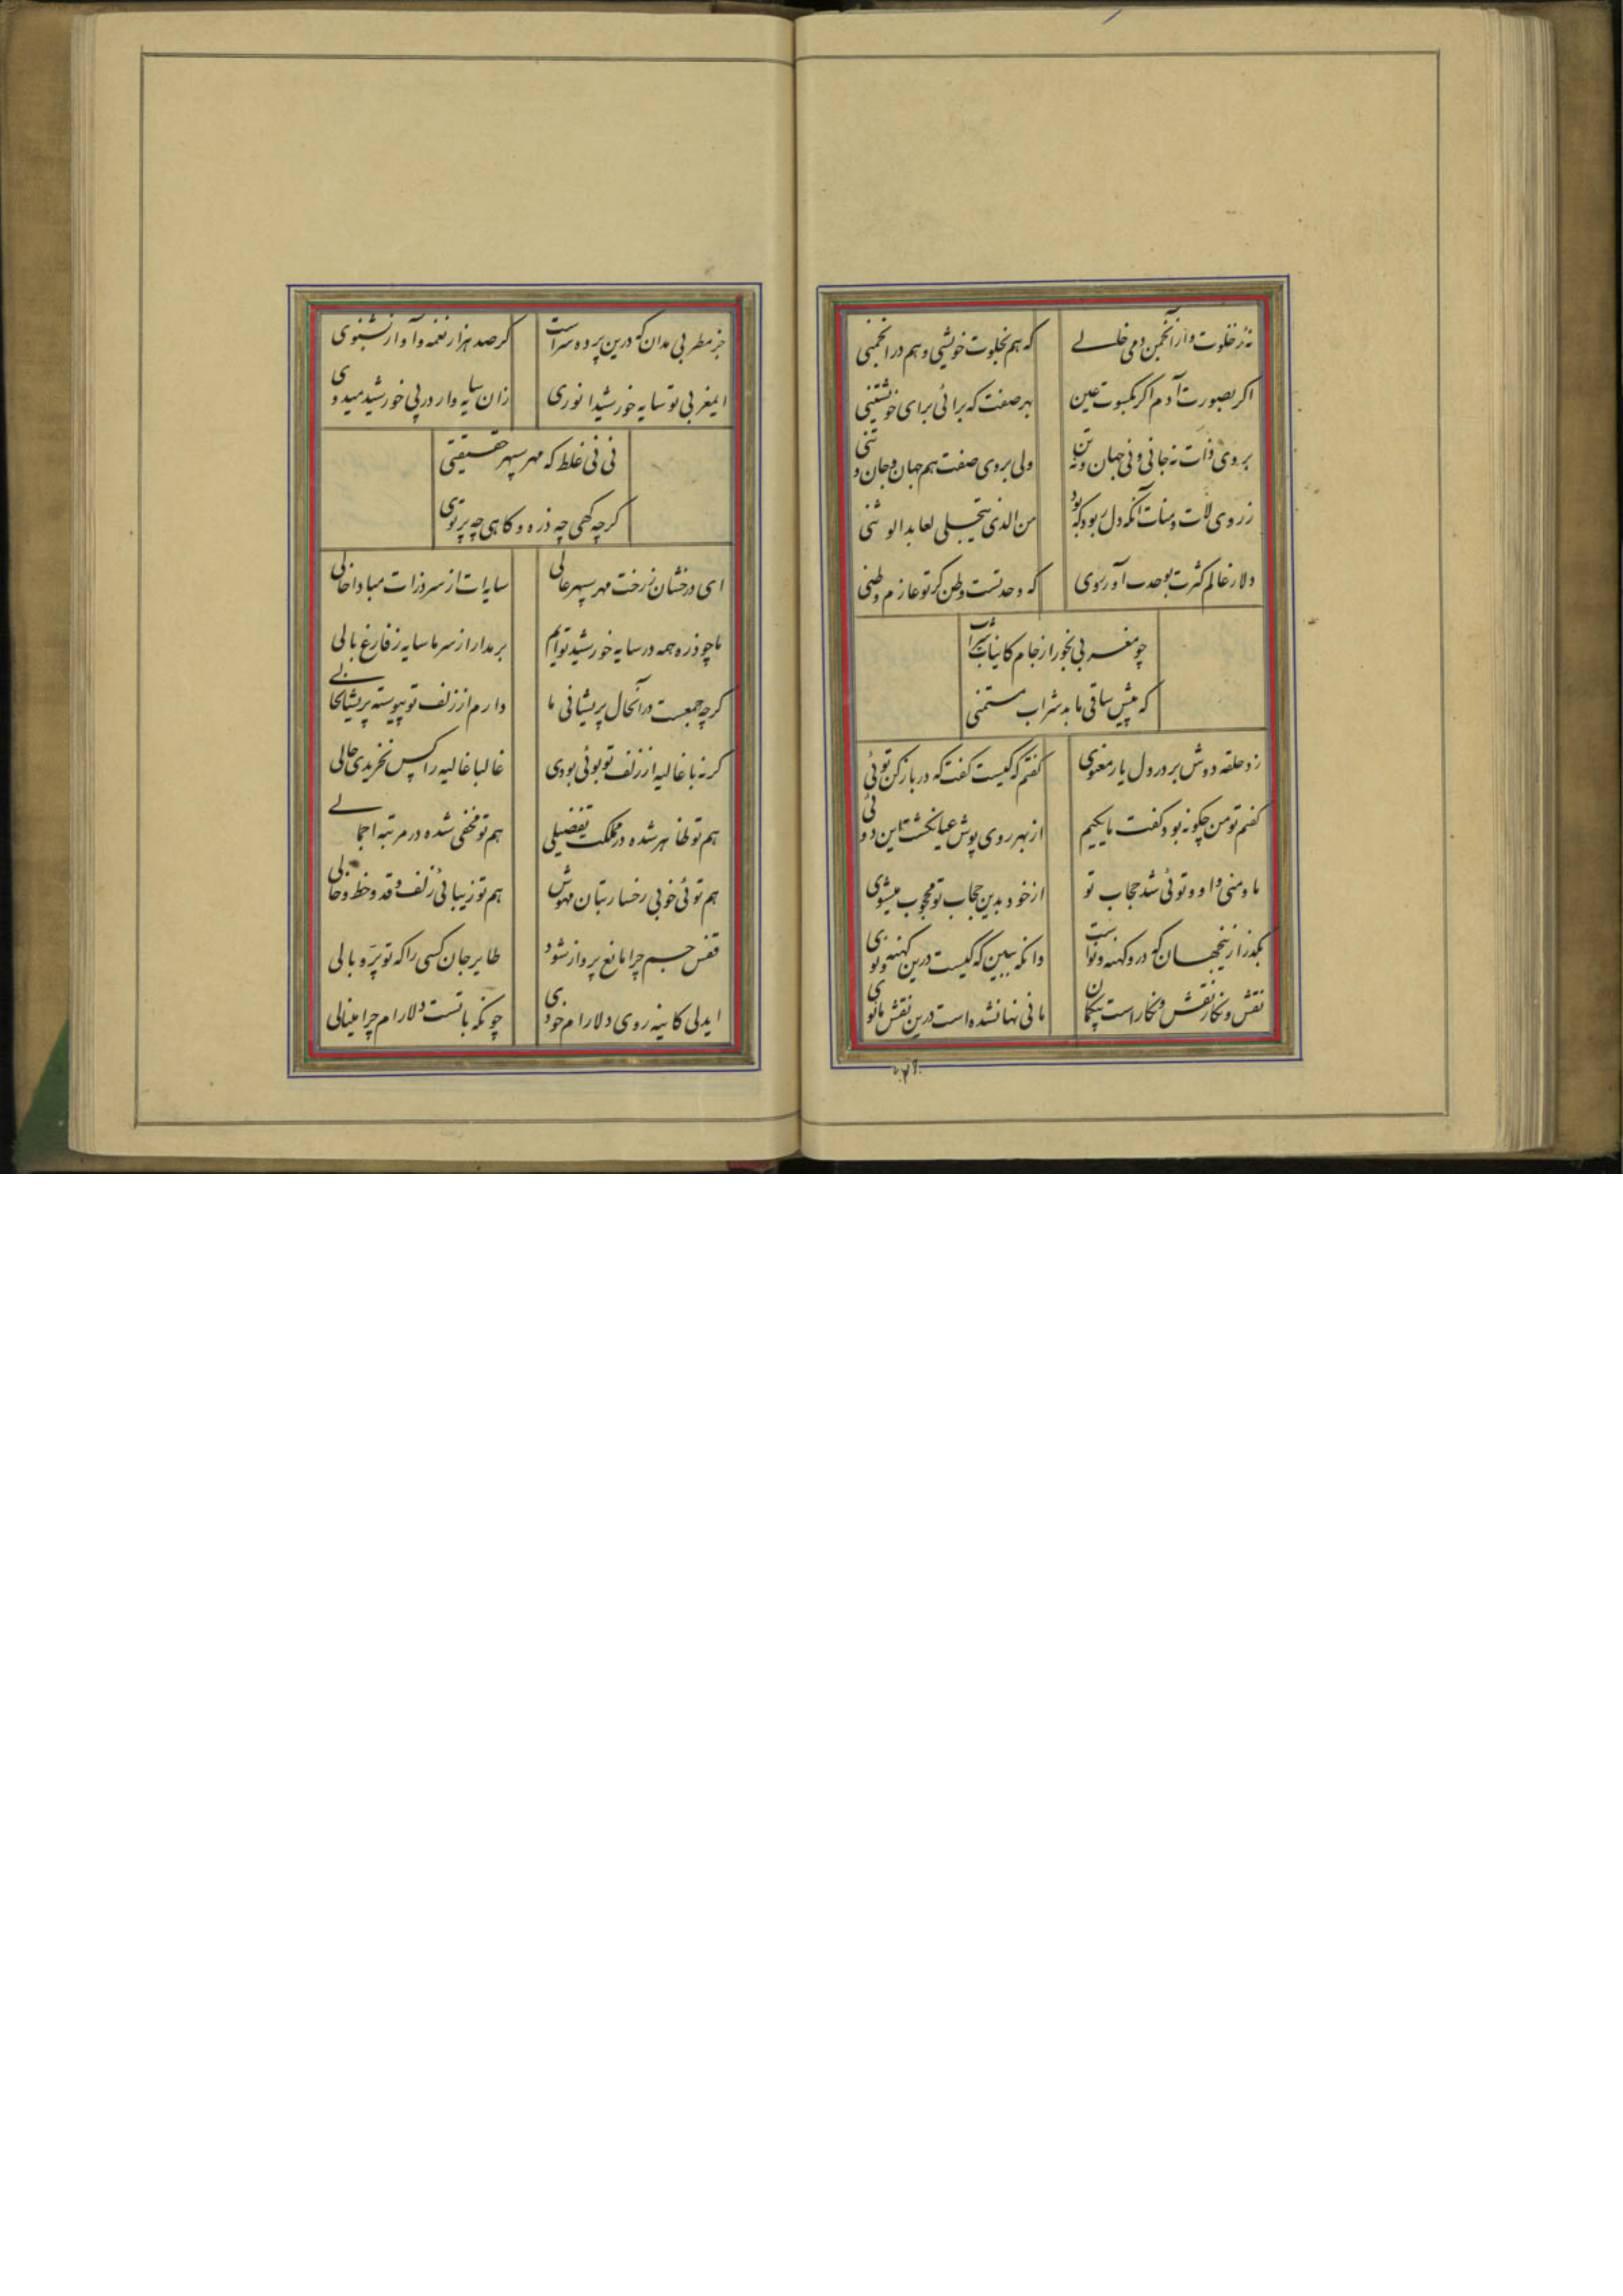 نه ز خلوت و از انجمن دمی خالی
که هم بخلوت خویشی و هم در انجمنی
اگر بصورت آدم اگر بکسوت عین
بهر صفت که برائی برای خویشتنی
بروی ذات نه جانی و نی جهان و نه تن
ولی بروی صفت هم جهان و جان و تنی
ز روی لات و منات آنکه دل ربود که بود
من الذی یتجلی لعابد الوثنی
دلا ز عالم کثرت بوحدت آور روی
که وحدتست وطن گر تو عازم وطنی
چو مغربی بخور از جام کاینات شراب
که پیش ساقی ما بد شراب مستمنی
زد حلقه دوش بر در دل یار معنوی
گفتم که کیست گفت که در باز کن توئی
گفتم تو من چگونه بود گفت ما یکیم
از بهر روی پوش عیان گشت این دوئی
ما و منی و او و توئی شد حجاب تو
از خود بدین حجاب تو محجوب میشوی
بگذر ازینجهان که درو کهنه و نواست
وانگه ببین که کیست درین کهنه و نوی
نقش و نگار نقش و نگار است بیگمان
مانی نهانشده است درین نقش مانوی
جز مطربی مدان که درین پرده سراست
گر صد هزار نغمه و آواز بشنوی
ایمغربی تو سایه خورشید انوری
زان سایه وار در پی خورشید میدوی
نی نی غلط که مهر سپهر حقیقتی
گرچه گهی چه ذره و گاهی چه پرتوی
ای درخشان ز رخت مهر سپهر عالی
سایه ات از سر ذرات مبادا خالی
ما چو ذره همه در سایه خورشید توایم
بر مدار از سر ما سایه ز فارغ بالی
گرچه جمعست در آنحال پریشانی ما
دارم از زلف تو پیوسته پریشانحالی
گر نه با غالیه از زلف تو بوئی بودی
غالبا غالیه را کس نخریدی حالی
هم تو ظاهر شده در مملکت تفضیلی
هم تو مخفی شده در مرتبه اجمالی
هم توئی خوبی رخسار بتان مهوش
هم تو زیبائی زلف و قد و خط و خالی
قفس جسم چرا مانع پرواز شود
طایر جان کسی را که تو پر و بالی
ایدلی کاینه روی دلارام خودی
چونکه با تست دلارام چرا مینالی